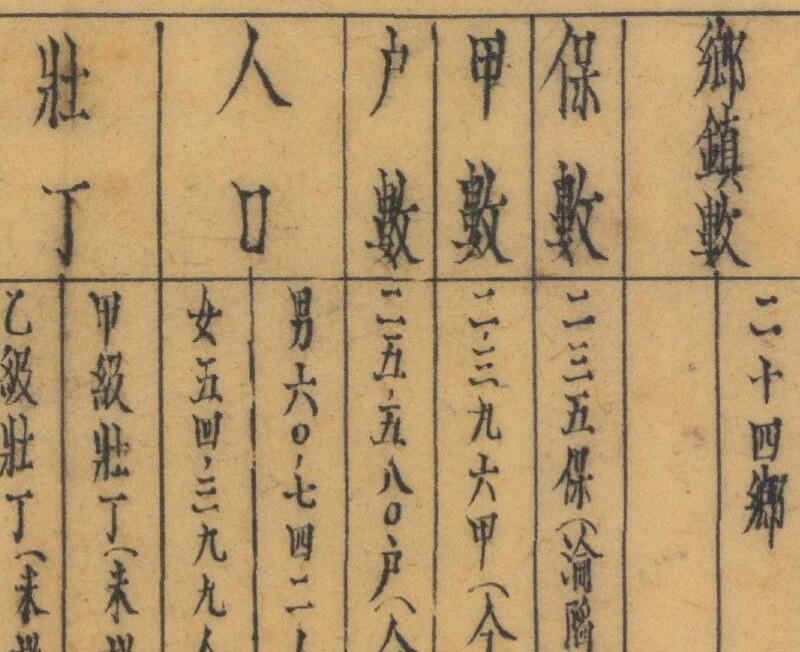 鄉鎮數
二十四鄉
保數
二三五保（淪陷
甲數
二,三九六甲（
戶數
二五,五八〇戶（
人口
男六〇,七四二人
女五四,三九九人
壯丁
甲級壯丁（未
乙級壯丁（未